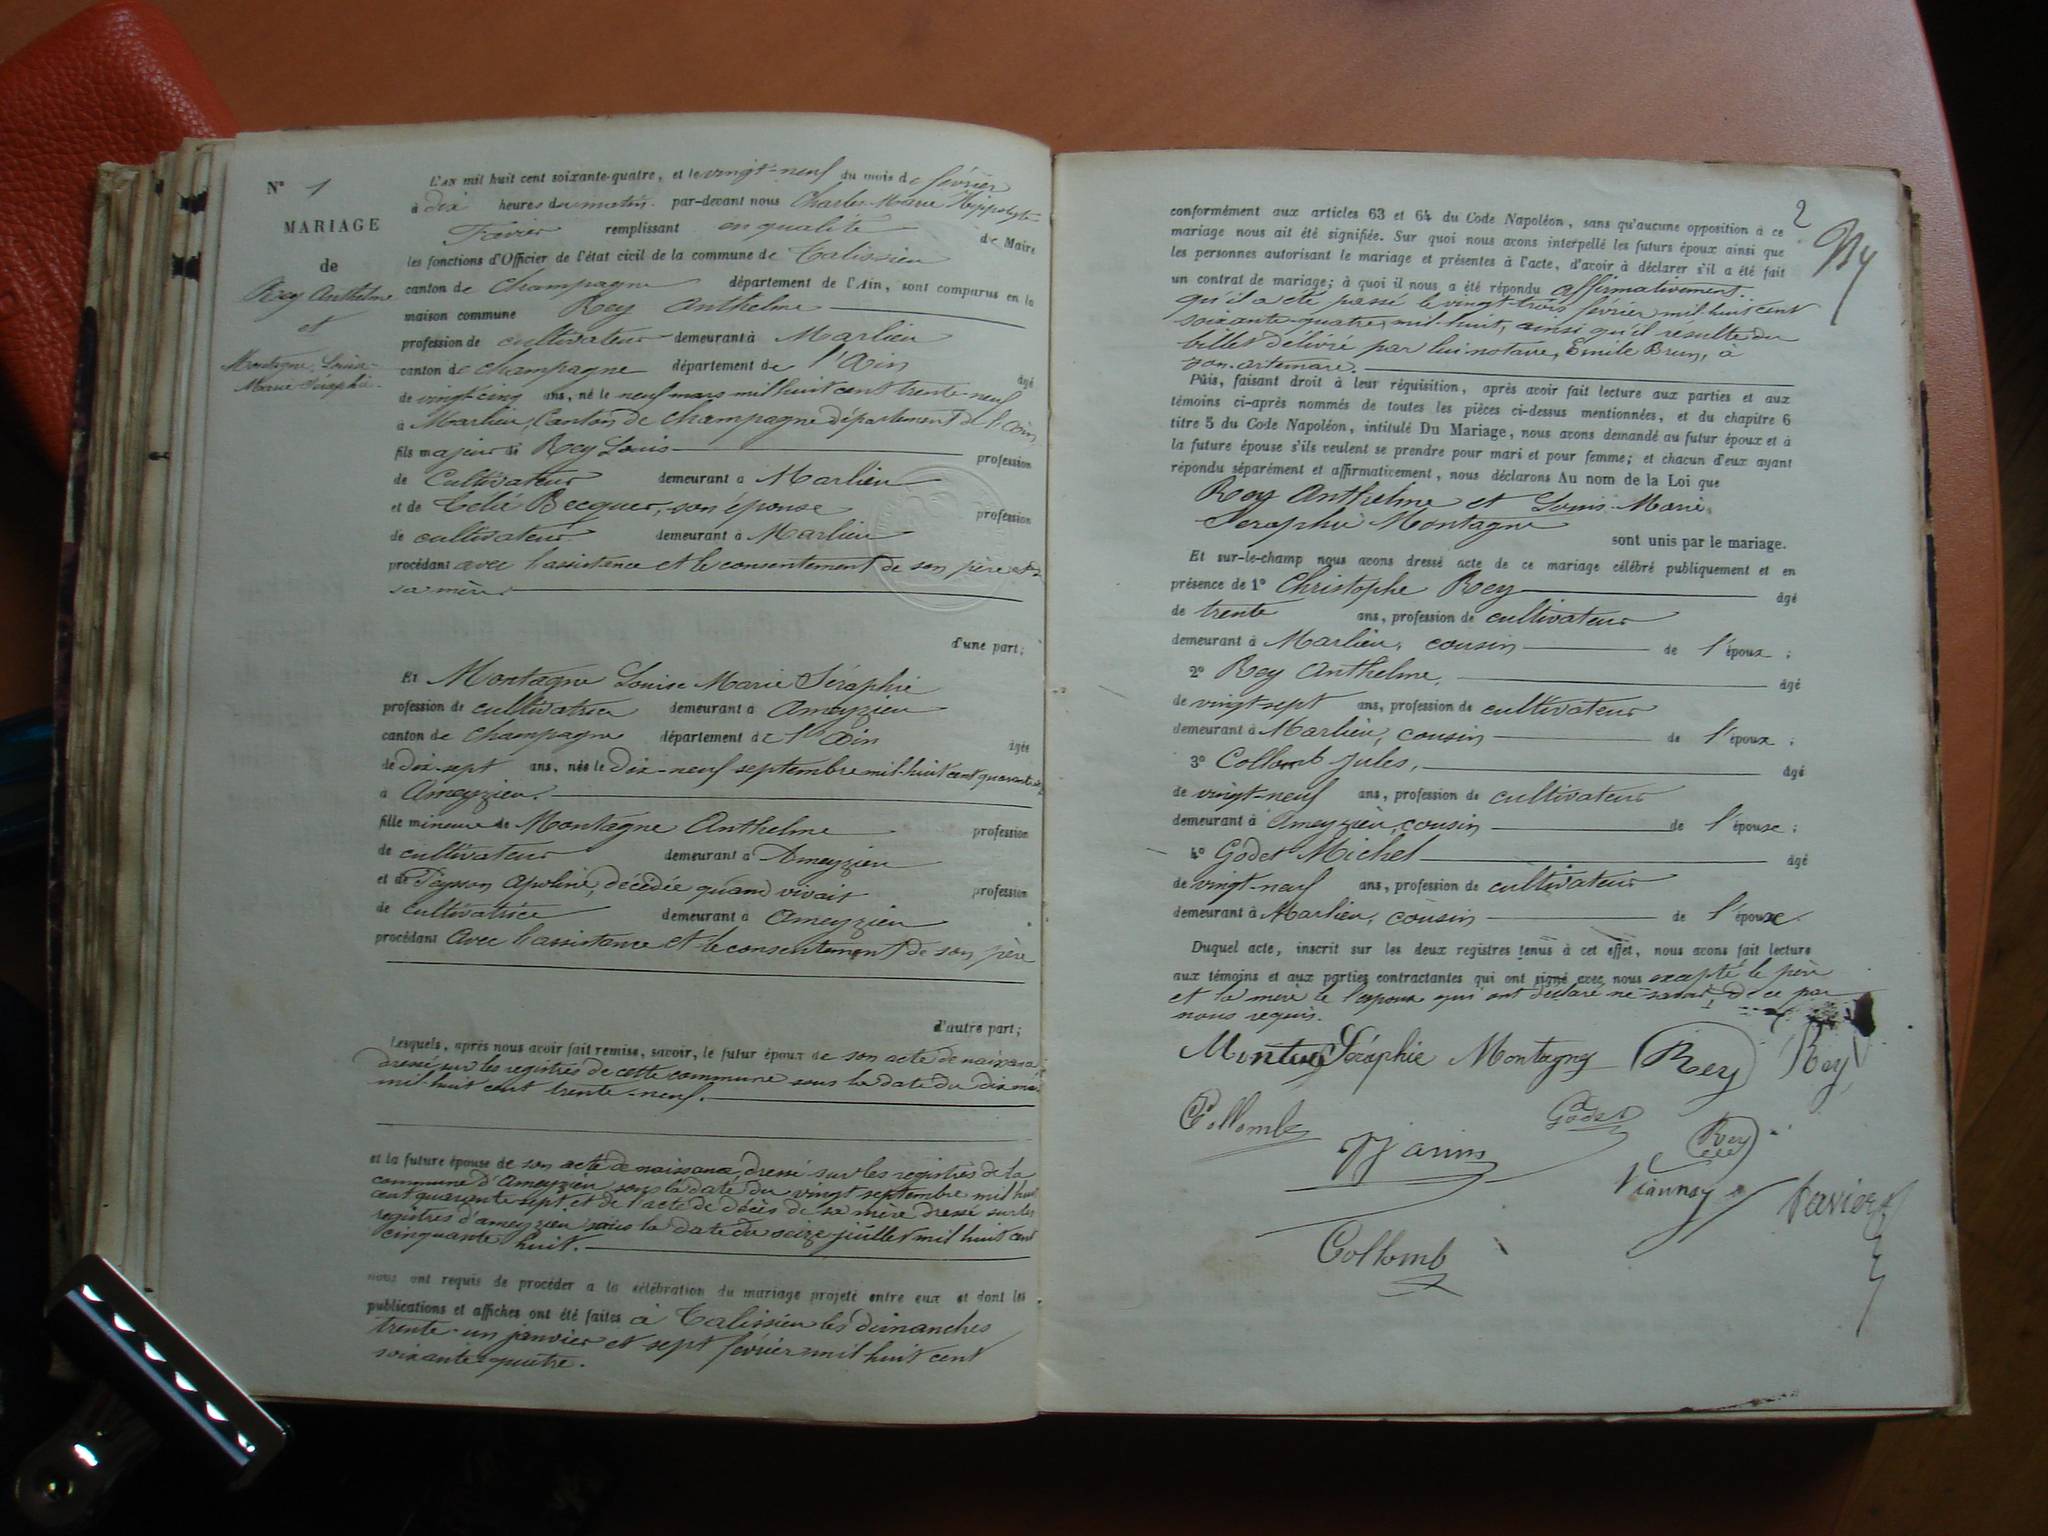 N° 1
MARIAGE
de
Rey Anthelme
et
Montagne, Louise-
Marie Séraphie.
L'AN mil huit cent soixante-quatre, et le vingt-neuf du mois de février
à dix heures du matin par-devant nous Charles Marie Hippolyte
Favier remplissant en qualité de Maire
les fonctions d'Officier de l'état civil de la commune de Talissieu
canton de Champagne département de l'Ain, sont comparus en la
maison commune Rey Anthelme
profession de cultivateur demeurant à Marlieu
canton de champagne département de l'Ain âgé
de vingt cinq ans, né le neuf mars mil huit cent trente-neuf
à Marlieu, Canton de Champagne département de l'Ain
fils majeur de Rey Louis profession
de Cultivateur demeurant à Marlieu
et de Becquer, son épouse profession
de cultivateur demeurant à Marlieu
procédant avec l'assistance et le consentement de son père et
sa mère
d'une part;
Et Montagne Louise Marie Séraphie
profession de cultivatrice demeurant à Ameyzieu
canton de Champagne département de l'Ain âgée
de dix-sept ans, née le dix-neuf septembre mil huit cent quarante
à Ameyzieu.
fille mineure de Montagne Anthelme profession
de cultivateur demeurant à Ameyzieu
et de Peysson Apoline, décédée quand vivait profession
de cultivatrice demeurant à Ameyzieu
procédant avec l'assistance et le consentement de son père
d'autre part;
Lesquels, après nous avoir fait remise, savoir, le futur époux de son acte de naissance
dressé sur les registres de cette commune sous la date du dix mars
mil-huit cent trente-neuf.
et la future épouse de son acte de naissance, dressé sur les registres de la
commune d'Ameyzieu sous la date du vingt septembre mil huit
cent quarante sept et de l'acte de décès de sa mère dressé sur les
registres d'ameyzieu sous la date du seize juillet mil huit cent
cinquante huit.
nous ont requis de procéder à la célébration du mariage projeté entre eux et dont les
publications et affiches ont été faites à Talissieu les dimanches
trente-un janvier et sept février mil huit cent
soixante-quatre.
2
conformément aux articles 63 et 64 du Code Napoléon, sans qu'aucune opposition à ce
mariage nous ait été signifiée. Sur quoi nous avons interpellé les futurs époux ainsi que
les personnes autorisant le mariage et présentes à l'acte, d'avoir à déclarer s'il a été fait
un contrat de mariage; à quoi il nous a été répondu affirmativement.
qu'il a été passé le vingt-trois février mil huit cent
soixante-quatre, mil-huit, ainsi qu'il résulte du
billet délivré par lui notaire, Emile Brun, à
yon-artemare.
Puis, faisant droit à leur réquisition, après avoir fait lecture aux parties et aux
témoins ci-après nommés de toutes les pièces ci-dessus mentionnées, et du chapitre 6
titre 5 du Code Napoléon, intitulé Du Mariage, nous avons demandé au futur époux et à
la future épouse s'ils veulent se prendre pour mari et pour femme; et chacun d'eux ayant
répondu séparément et affirmativement, nous déclarons Au nom de la Loi que
Rey Anthelme et Louis-Marie
Séraphie Montagne
sont unis par le mariage.
Et sur-le-champ nous avons dressé acte de ce mariage célébré publiquement et en
présence de 1° Christophe Rey âgé
de trente ans, profession de cultivateur
demeurant à Marlieu, cousin de l'époux;
2° Rey Anthelme, âgé
de vingt-sept ans, profession de cultivateur
demeurant à Marlieu, cousin de l'époux;
3° Collomb Jules, âgé
de vingt-neuf ans, profession de cultivateur
demeurant à Ameyzieu, cousin de l'épouse;
4° Godet Michel âgé
de vingt-neuf ans, profession de cultivateur
demeurant à Marlieu, cousin de l'épouse.
Duquel acte, inscrit sur les deux registres tenus à cet effet, nous avons fait lecture
aux témoins et aux parties contractantes qui ont signé avec nous excepté le père
et la mère de l'époux qui ont déclaré ne savoir, de ce par
nous requis.
Séraphie Montagne Rey Rey
Collomb Godet Rey
Viannay Favier
Collomb